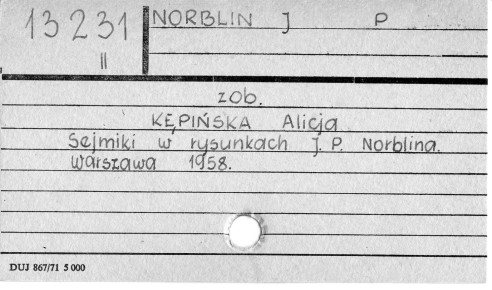 13231
II
NORBLIN J P
zob.
KĘPIŃSKA Alicja
Sejmiki w rysunkach J. P. Norblina.
Warszawa 1958.
DUJ 867/71 5 000